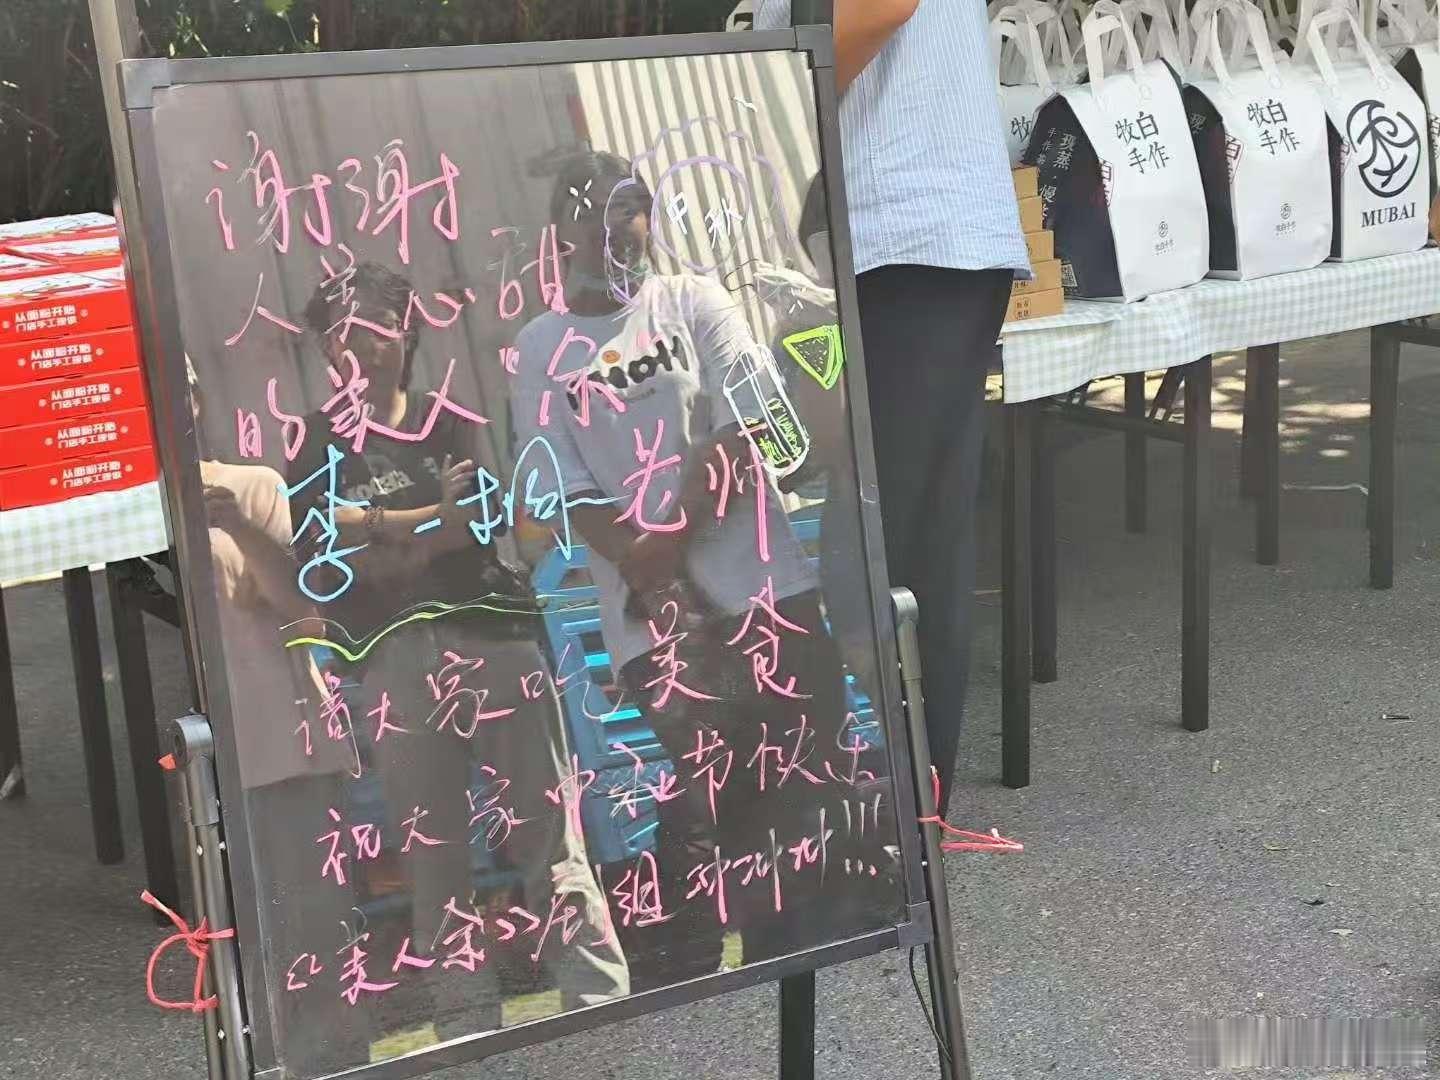 谢谢
人美心甜
的美人"余"
李一桐老师
请大家吃美食
祝大家中秋节快乐
《美人余》剧组冲冲冲!!!
中秋
从面粉开始
门店手工现做
从面粉开始
门店手工现做
从面粉开始
门店手工现做
从面粉开始
门店手工现做
从面粉开始
门店手工现做
牧白
手作
现蒸
手作
牧白手作
牧白
手作
牧白手作
MUBAI